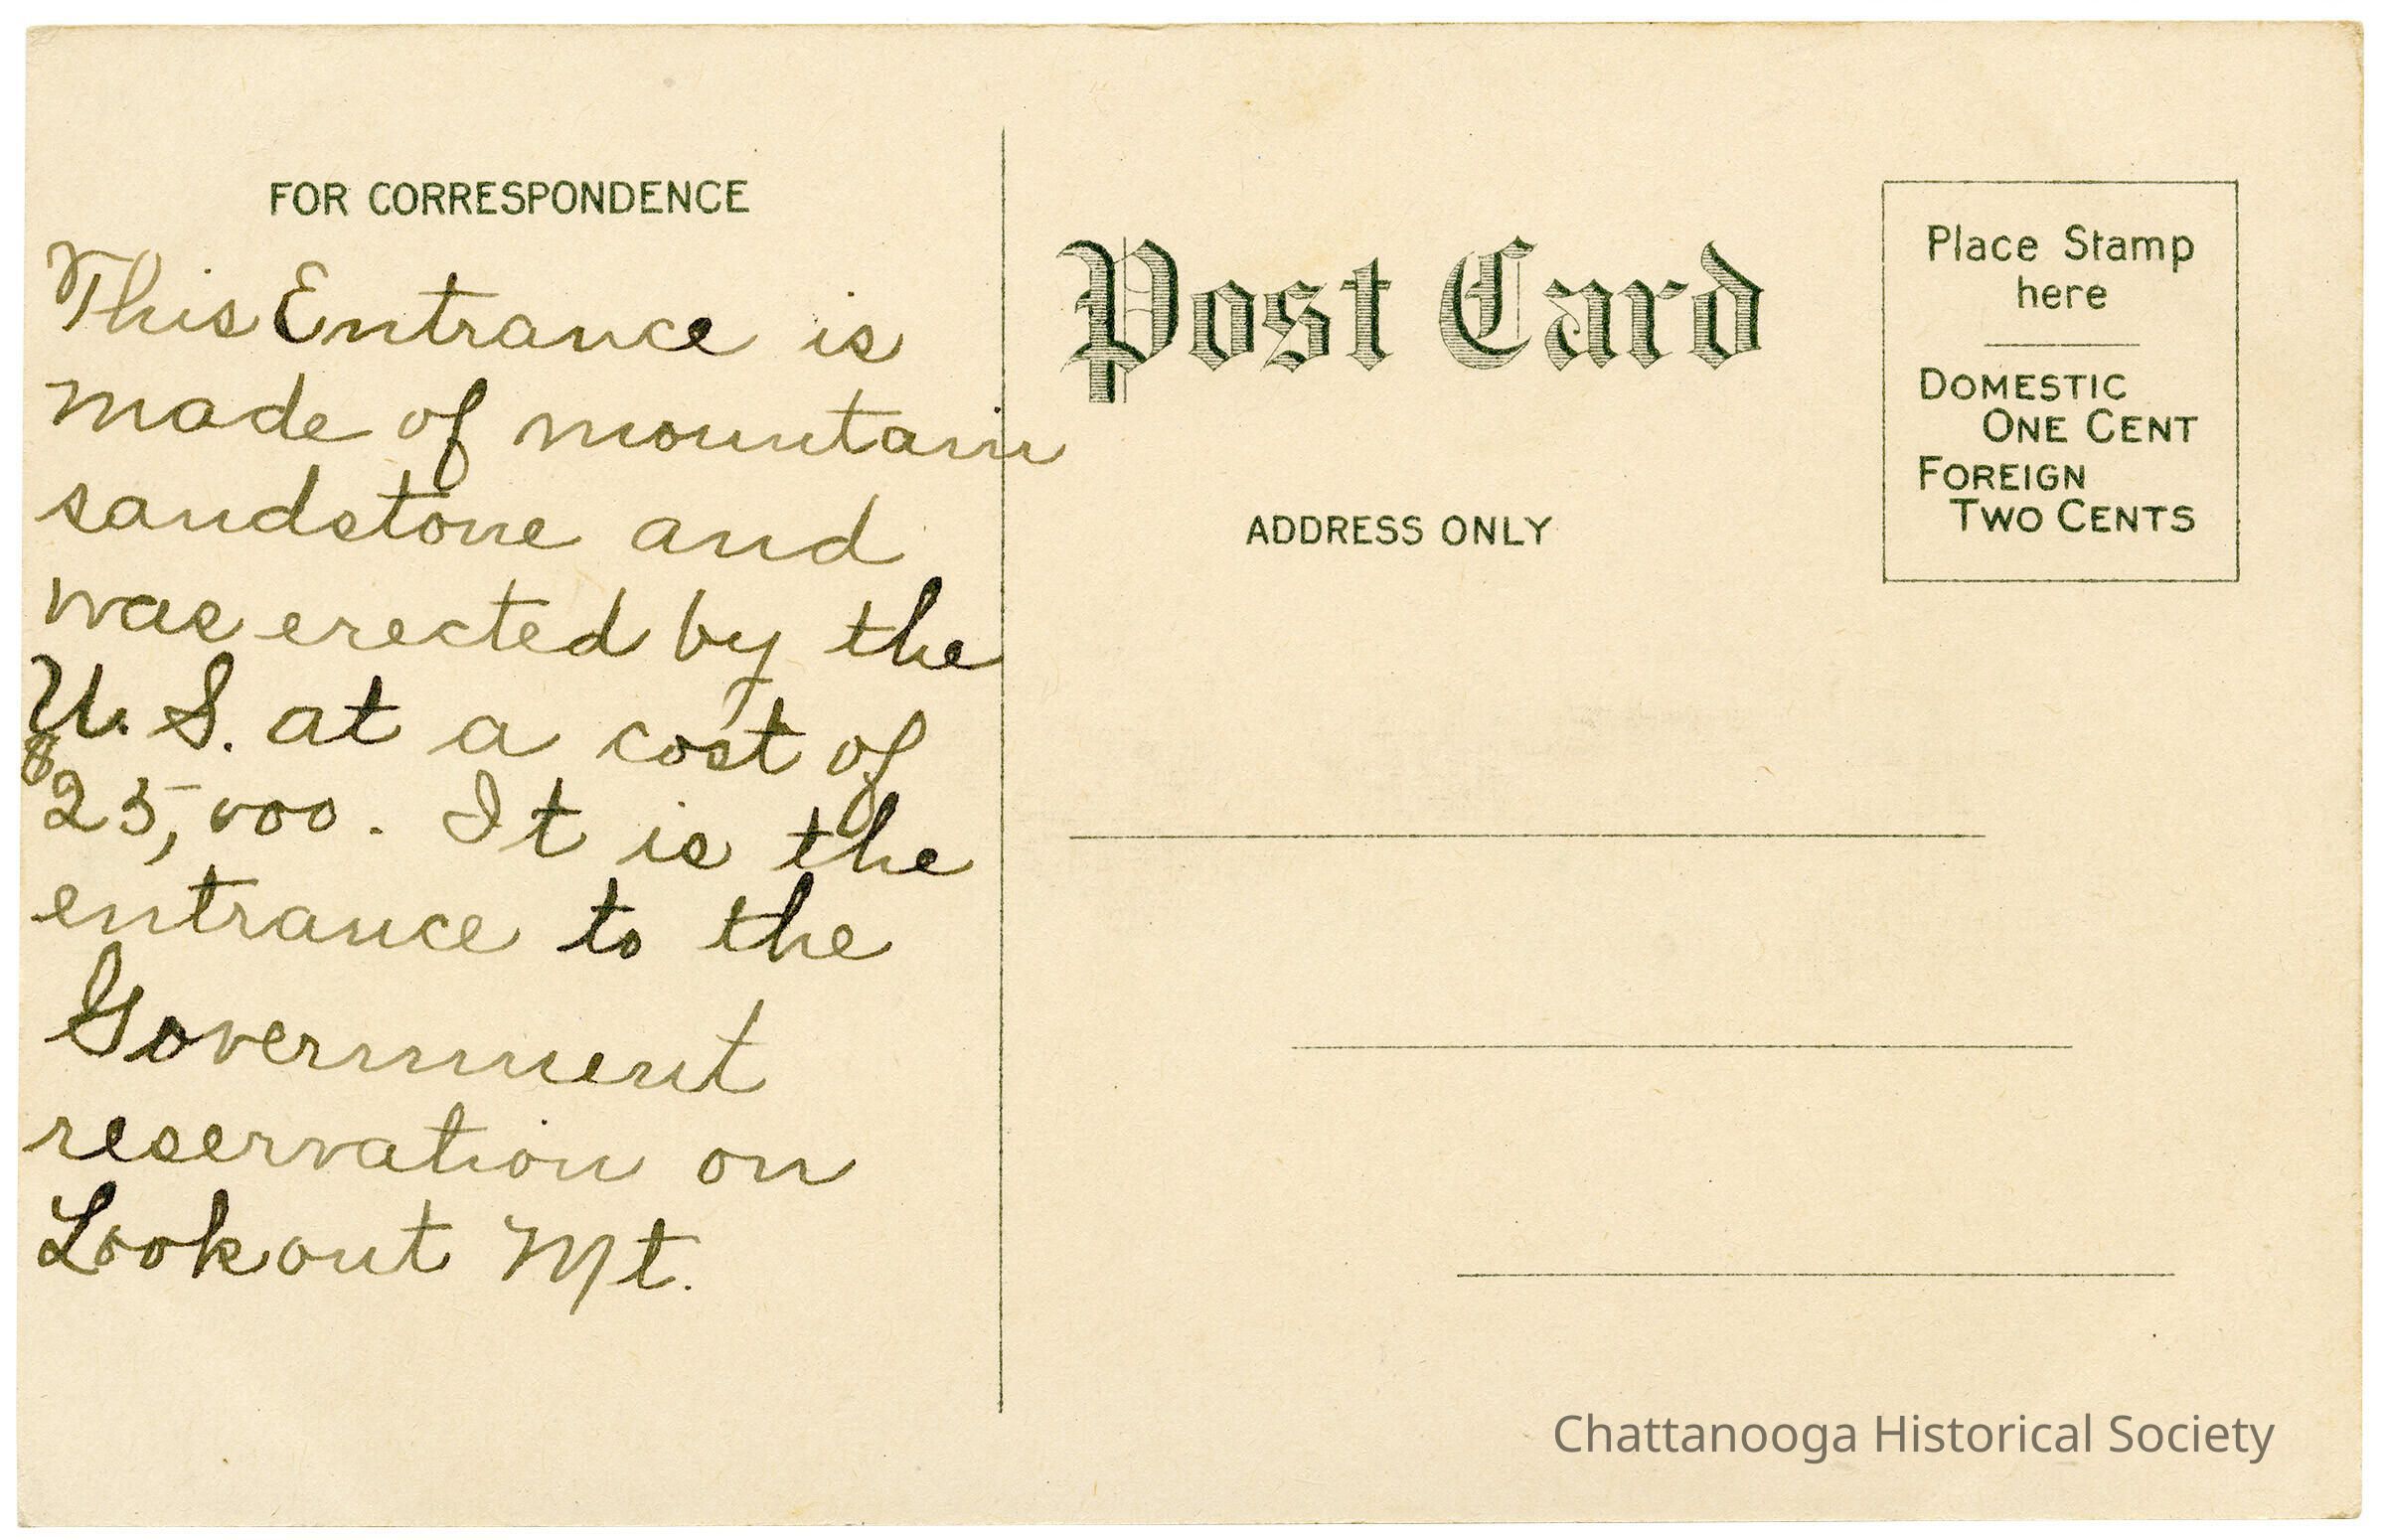 FOR CORRESPONDENCE
This Entrance is
made of mountain
sandstone and
was erected by the
U. S. at a cost of
$25,000. It is the
entrance to the
Government
reservation on
Lookout Mt.
Post Card
ADDRESS ONLY
Place Stamp
here
DOMESTIC
ONE CENT
FOREIGN
TWO CENTS
Chattanooga Historical Society